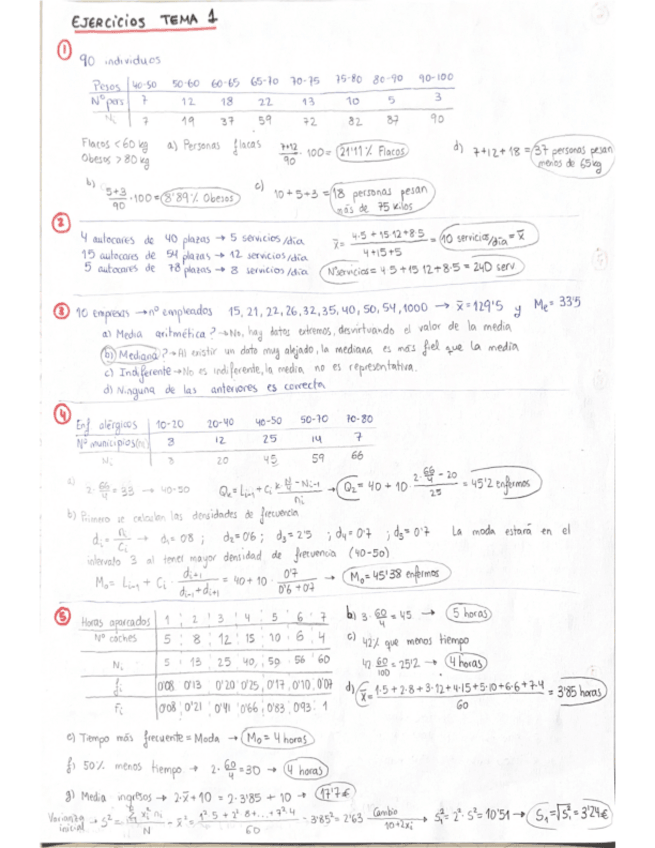 EJERCICIOS TEMA 1
① 90 individuos
Pesos 40-50 50-60 60-65 65-70 70-75 75-80 80-90 90-100
Nº pers 7 12 18 22 13 10 5 3
Ni 7 19 37 59 72 82 87 90
Flacos < 60 kg
Obesos > 80 kg
a) Personas flacas (7+12)/90 · 100 = 21'11 % Flacos
b) (5+3)/90 · 100 = 8'89 % Obesos
c) 10 + 5 + 3 = 18 personas pesan más de 75 kilos
d) 7+12+18 = 37 personas pesan menos de 65 kg
②
4 autocares de 40 plazas → 5 servicios/día
15 autocares de 54 plazas → 12 servicios/día
5 autocares de 78 plazas → 8 servicios/día
x̄ = (4·5 + 15·12 + 8·5)/(4+15+5) = 10 servicios/día = x̄
Nºservicios = 4·5 + 15·12 + 8·5 = 240 serv
③ 10 empresas → nº empleados 15, 21, 22, 26, 32, 35, 40, 50, 54, 1000 → x̄ = 129'5 y Me = 33'5
a) Media aritmética? → No, hay datos extremos, desvirtuando el valor de la media
b) Mediana? → Al existir un dato muy alejado, la mediana es más fiel que la media
c) Indiferente → No es indiferente, la media no es representativa.
d) Ninguna de las anteriores es correcta
④
Enf alérgicos 10-20 20-40 40-50 50-70 70-80
Nº municipios(ni) 8 12 25 14 7
Ni 8 20 45 59 66
a) 2·66/4 = 33 → 40-50 Qk = Li-1 + Ci (k·N/4 - Ni-1)/ni → Q2 = 40 + 10 · (2·66/4 - 20)/25 = 45'2 enfermos
b) Primero se calculan las densidades de frecuencia
di = ni/Ci → d1 = 0'8 ; d2 = 0'6 ; d3 = 2'5 ; d4 = 0'7 ; d5 = 0'7 La moda estará en el
intervalo 3 al tener mayor densidad de frecuencia (40-50)
Mo = Li-1 + Ci · di+1/(di-1 + di+1) = 40 + 10 · 0'7/(0'6 + 0'7) → Mo = 45'38 enfermos
⑤
Horas aparcados 1 2 3 4 5 6 7
Nº coches 5 8 12 15 10 6 4
Ni 5 13 25 40 50 56 60
fi 0'08 0'13 0'20 0'25 0'17 0'10 0'07
Fi 0'08 0'21 0'41 0'66 0'83 0'93 1
b) 3·60/4 = 45 → 5 horas
c) 42% que menos tiempo
42·60/100 = 25'2 → 4 horas
d) x̄ = (1·5+2·8+3·12+4·15+5·10+6·6+7·4)/60 = 3'85 horas
e) Tiempo más frecuente = Moda → Mo = 4 horas
f) 50% menos tiempo → 2·60/4 = 30 → 4 horas
g) Media ingresos → 2·x̄ + 10 = 2·3'85 + 10 → 17'7 €
Varianza inicial → S² = Σ xi² ni/N - x̄² = (1²·5 + 2²·8 + ... + 7²·4)/60 - 3'85² = 2'63 Cambio 10+2xi → S1² = 2² · S² = 10'51 → S1 = √S1² = 3'24 €